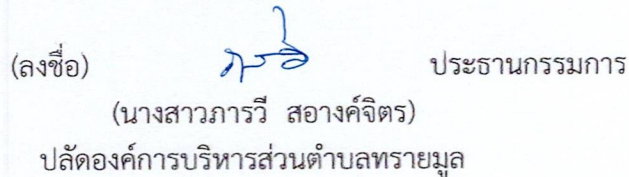 (ลงชื่อ) ประธานกรรมการ
(นางสาวภารวี สอางค์จิตร)
ปลัดองค์การบริหารส่วนตำบลทรายมูล